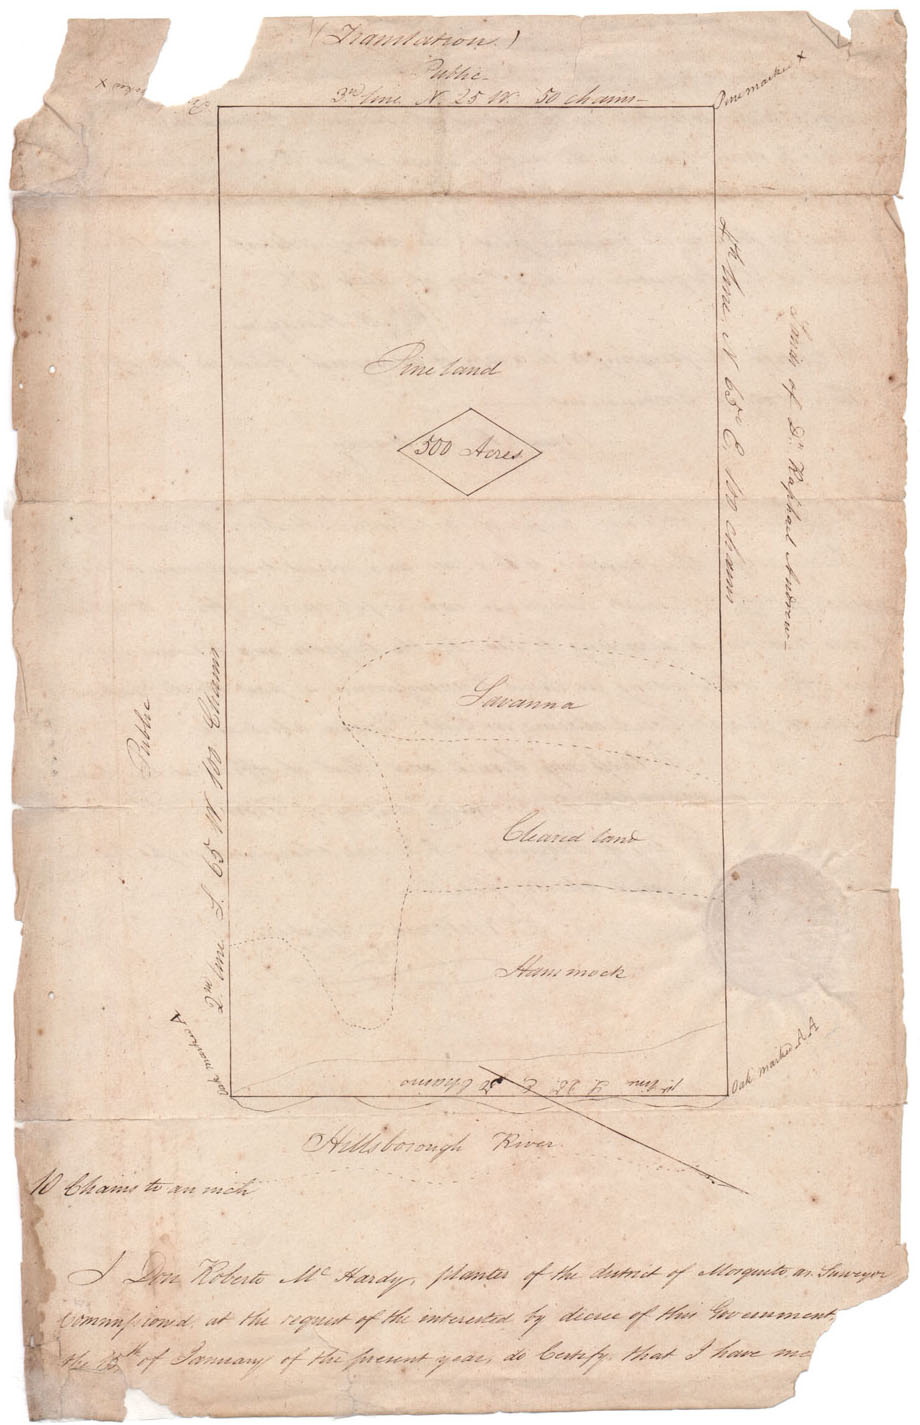 (Translation.)
Public
3rd line N. 25 W. 50 chains
Pine marked X
X
4th line N 65 E, 100 chains
Lands of Dn. Raphael Andrew
Pine land
500 Acres
Savanna
Cleared land
Hammock
Public
2nd line S. 65 W. 100 Chains
Oak marked A
Oak marked A A
1st line S 25 E 50 Chains
Hillsborough River
10 Chains to an inch
I Don Roberto Mc Hardy, planter of the district of Mosquito as Surveyor
Commissioned, at the request of the interested by decree of this Government,
the 15th of January of the present year, do Certify that I have me